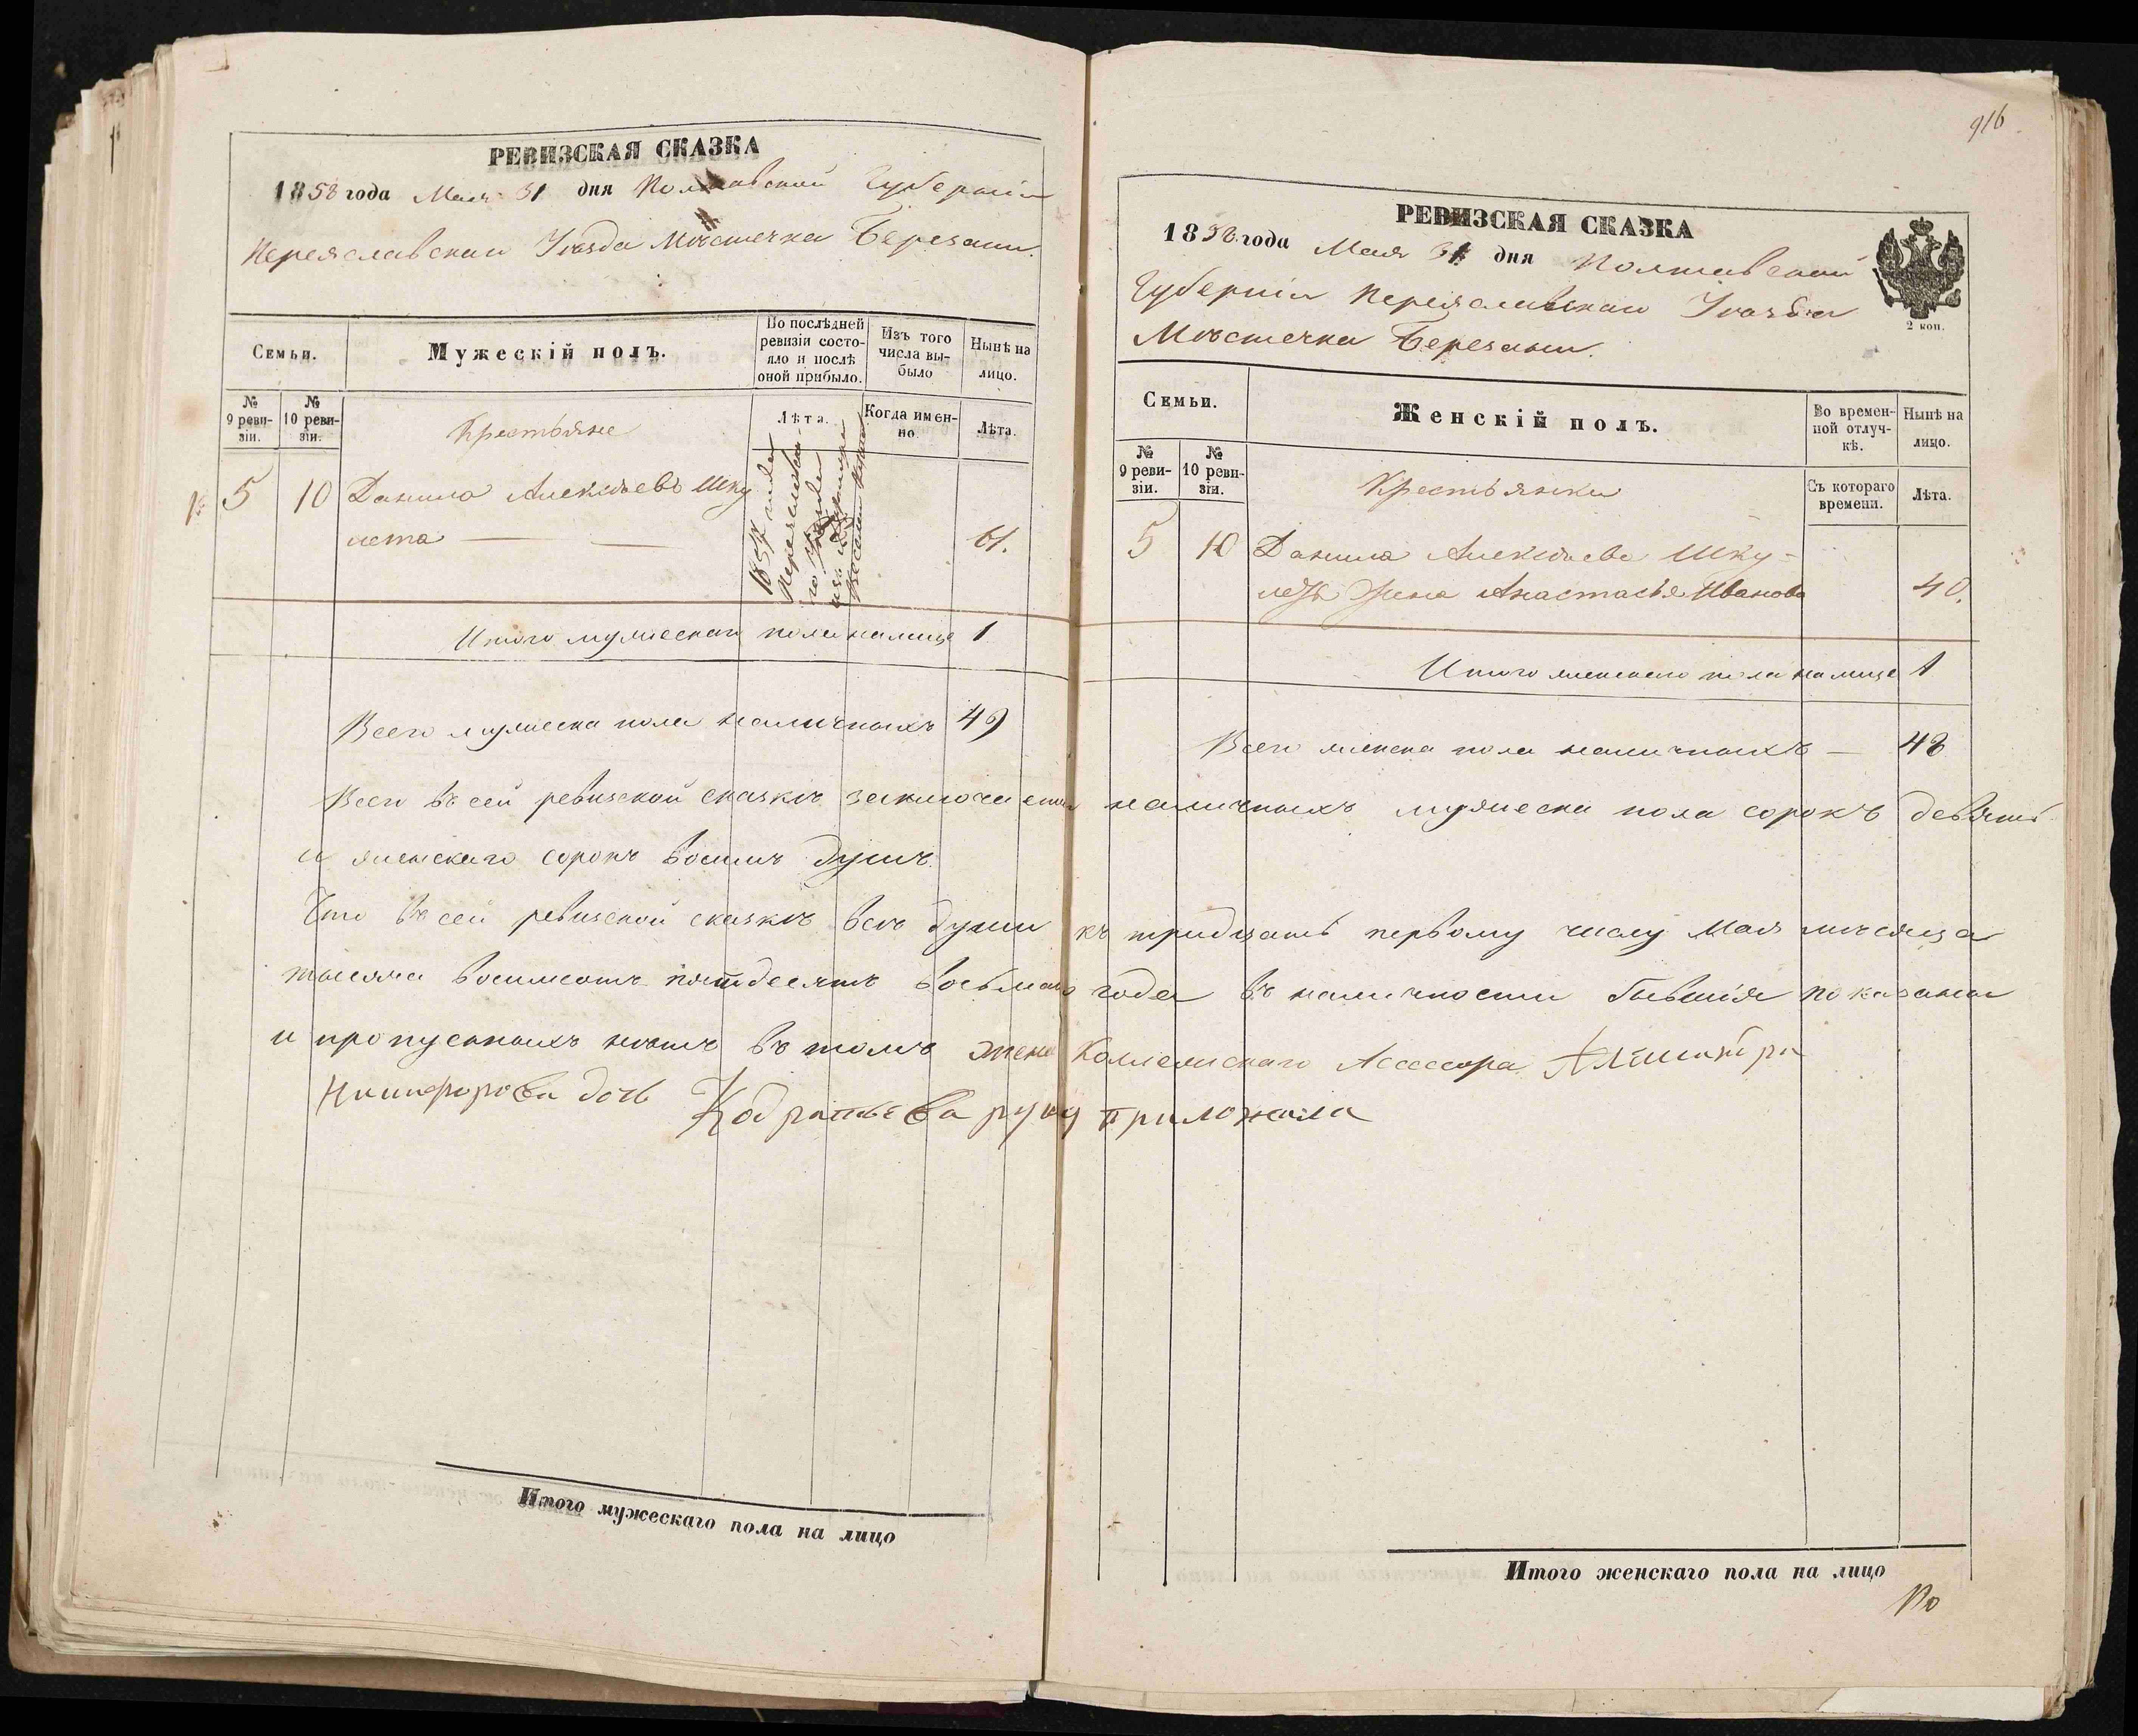 РЕВИЗСКАЯ СКАЗКА
1858 года Мая 31 дня Полтавской Губерніи
Переяславскаго Уѣзда Мѣстечка Березани.
Семьи.
Мужескій полъ.
По послѣдней ревизіи состояло и послѣ оной прибыло.
Изъ того числа выбыло
Нынѣ на лицо.
№ 9 ревизіи.
№ 10 ревизіи.
Крестьяне
Лѣта.
Когда именно.
Лѣта.
5 10 Данило Алексѣевъ Шку
лета 61.
1857 года
Итого мужескаго пола налице 1
Всего мужеска пола наличныхъ 49
Всего въ сей ревизской сказкѣ заключается наличныхъ мужеска пола сорокъ девять
и женскаго сорокъ восемь душъ
Что въ сей ревизской сказкѣ всѣ души къ тридцать первому числу Мая мѣсяца
тысяча восимсотъ пятдесятъ восьмаго года въ наличности бывшія показаны
и пропусныхъ нѣтъ въ томъ жена Колежскаго Асессора
дочь руку приложила
Итого мужескаго пола на лицо
916
РЕВИЗСКАЯ СКАЗКА
1858 года Мая 31 дня Полтавской
Губерніи Переяславскаго Уѣзда
Мѣстечка Березани.
2 коп.
Семьи.
Женскій полъ.
Во временной отлучкѣ.
Нынѣ на лицо.
№ 9 ревизіи.
№ 10 ревизіи.
Крестьянки
Съ котораго времени.
Лѣта.
5 10 Данила Алексѣева Шку-
леты жена Анастасья Иванова 40.
Итого женскаго пола налице 1
Всего женска пола наличныхъ — 48
Итого женскаго пола на лицо